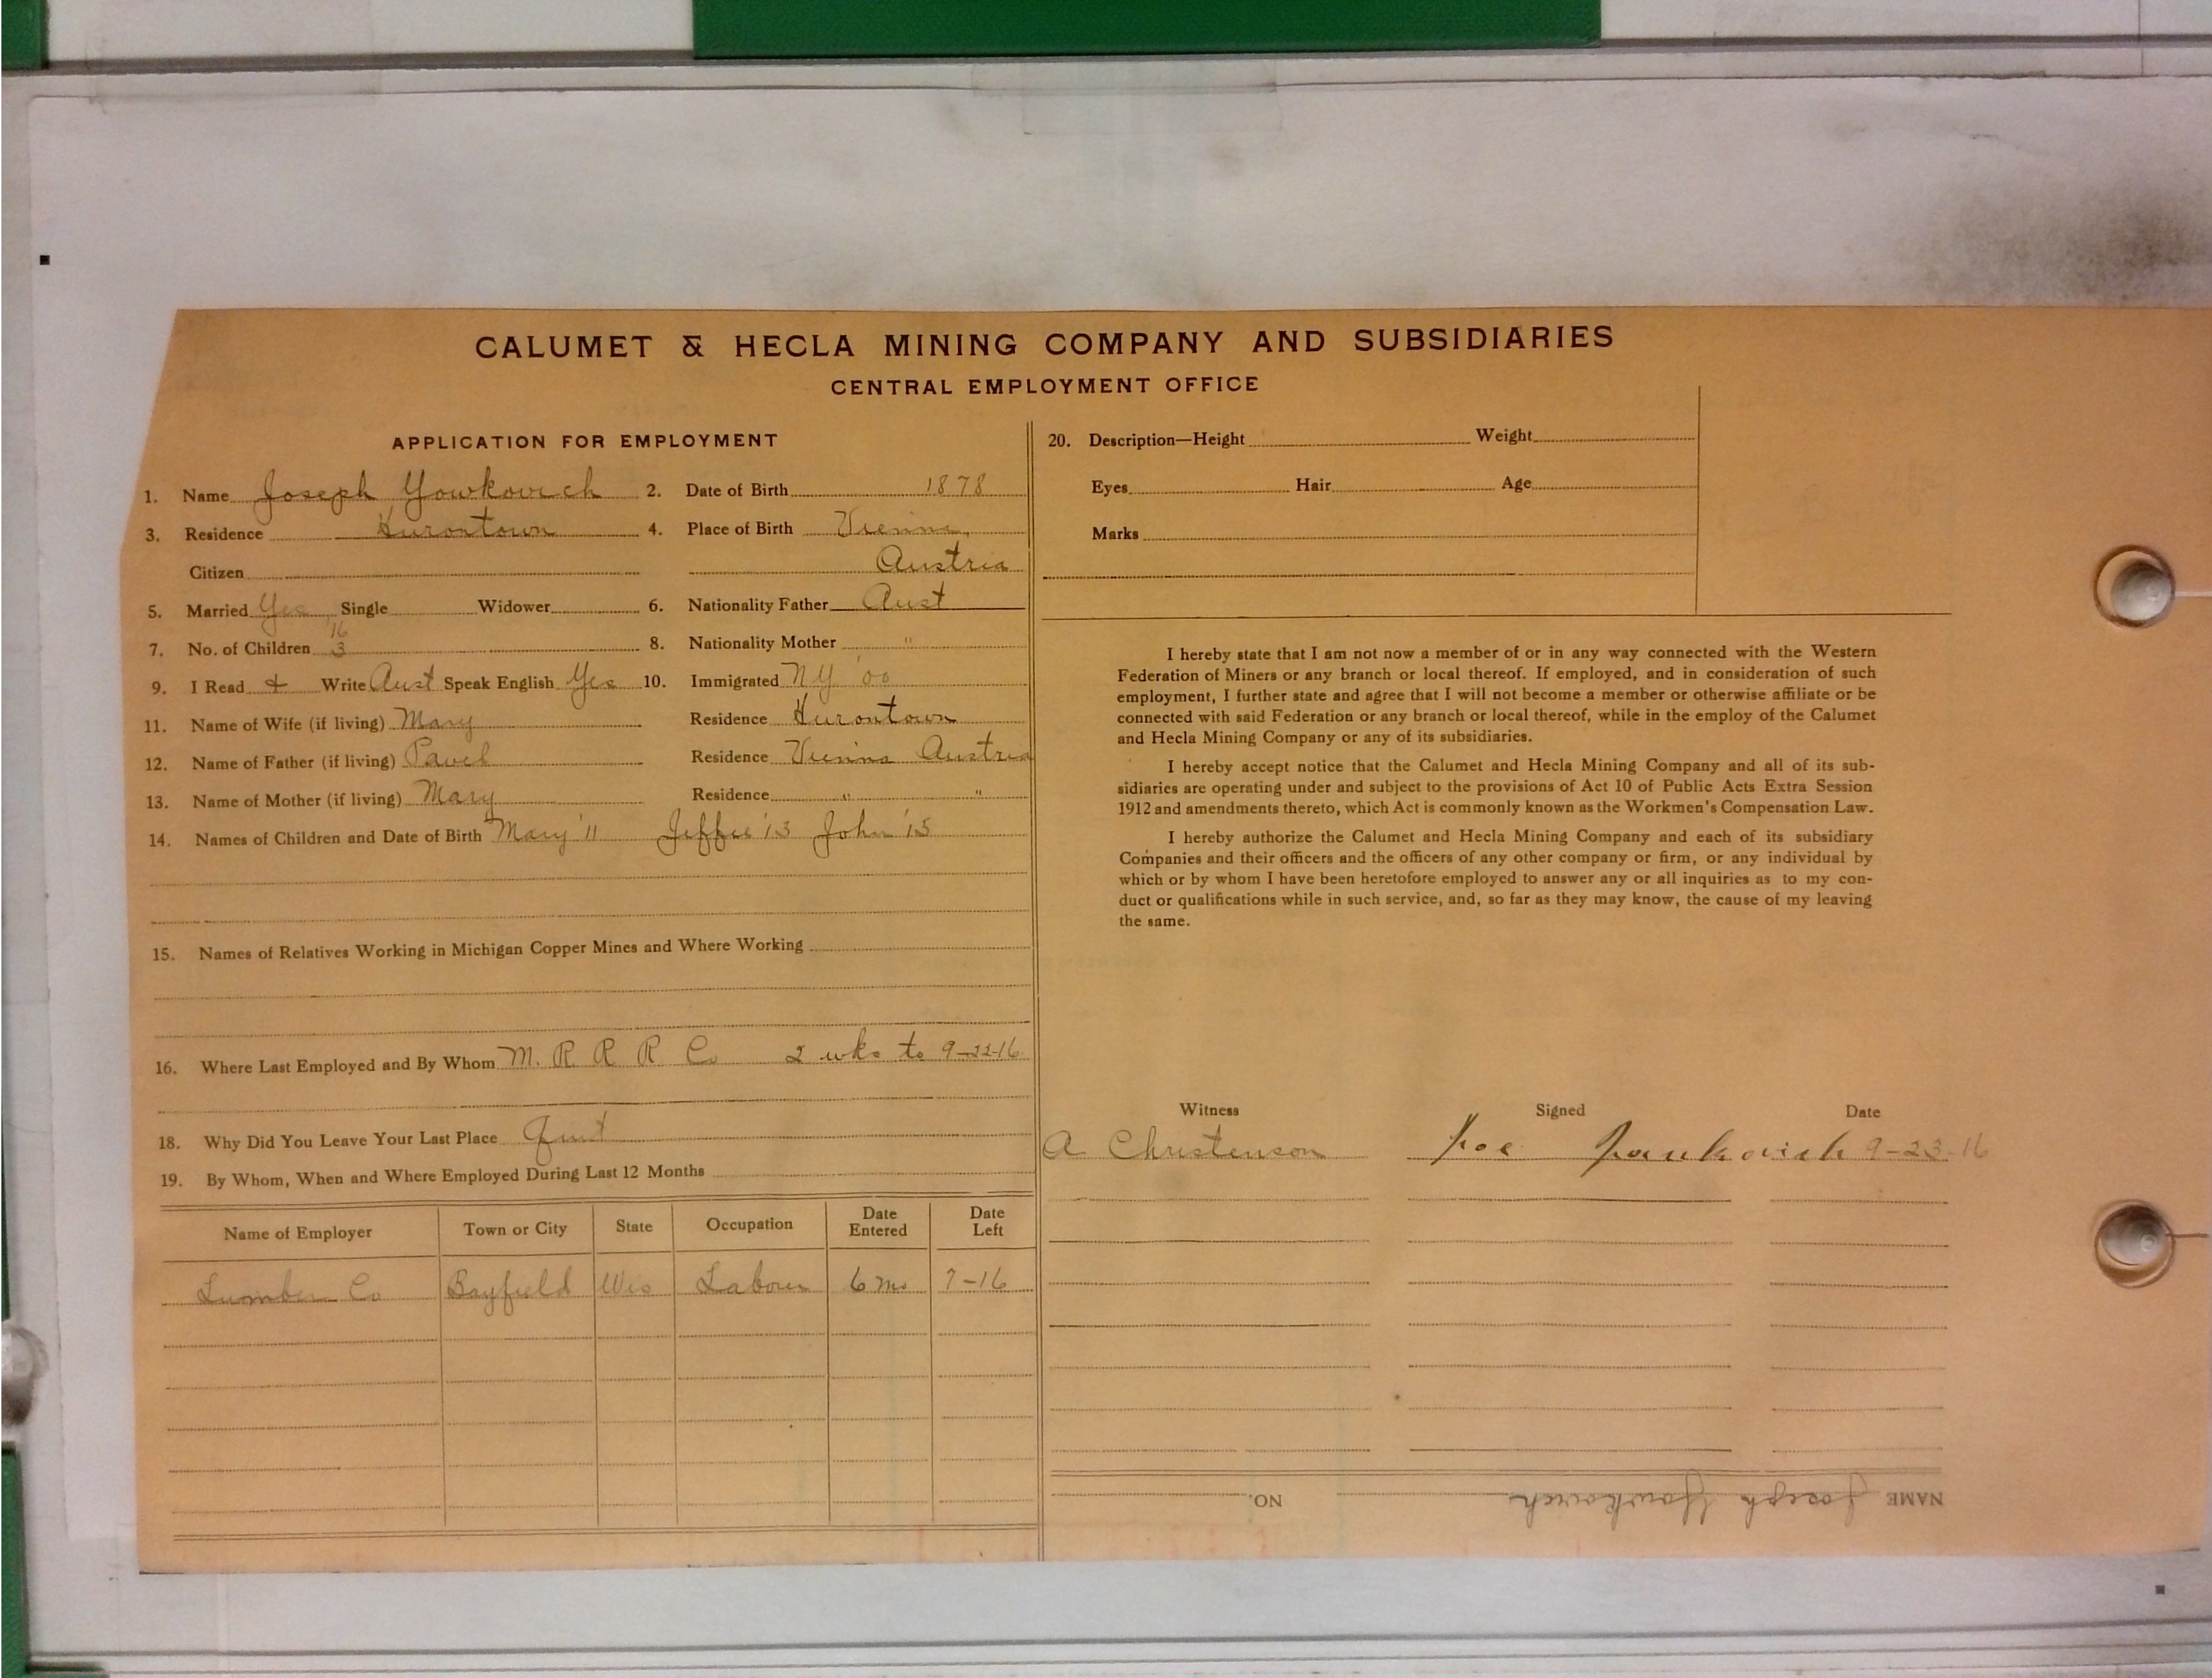 CALUMET & HECLA MINING COMPANY AND SUBSIDIARIES
CENTRAL EMPLOYMENT OFFICE
APPLICATION FOR EMPLOYMENT
1. Name Joseph Yowkovich 2. Date of Birth 1878
3. Residence Hurontown 4. Place of Birth Vienna,
Citizen Austria
5. Married Yes Single Widower 6. Nationality Father Aust
'16
7. No. of Children 3 8. Nationality Mother "
9. I Read + Write Aust Speak English Yes 10. Immigrated NY '00
11. Name of Wife (if living) Mary Residence Hurontown
12. Name of Father (if living) Pavel Residence Vienna Austria
13. Name of Mother (if living) Mary Residence " "
14. Names of Children and Date of Birth Mary '11 Jeffie '13 John '15
15. Names of Relatives Working in Michigan Copper Mines and Where Working
16. Where Last Employed and By Whom M. R R R Co 2 wks to 9-22-16
18. Why Did You Leave Your Last Place Quit
19. By Whom, When and Where Employed During Last 12 Months
Name of Employer Town or City State Occupation Date Entered Date Left
Lumber Co Bayfield Wis Labour 6 mo 7-16
20. Description—Height Weight
Eyes Hair Age
Marks
I hereby state that I am not now a member of or in any way connected with the Western
Federation of Miners or any branch or local thereof. If employed, and in consideration of such
employment, I further state and agree that I will not become a member or otherwise affiliate or be
connected with said Federation or any branch or local thereof, while in the employ of the Calumet
and Hecla Mining Company or any of its subsidiaries.
I hereby accept notice that the Calumet and Hecla Mining Company and all of its sub-
sidiaries are operating under and subject to the provisions of Act 10 of Public Acts Extra Session
1912 and amendments thereto, which Act is commonly known as the Workmen's Compensation Law.
I hereby authorize the Calumet and Hecla Mining Company and each of its subsidiary
Companies and their officers and the officers of any other company or firm, or any individual by
which or by whom I have been heretofore employed to answer any or all inquiries as to my con-
duct or qualifications while in such service, and, so far as they may know, the cause of my leaving
the same.
Witness Signed Date
A Christenson Joe 9-23-16
NAME Joseph Yowkovich NO.